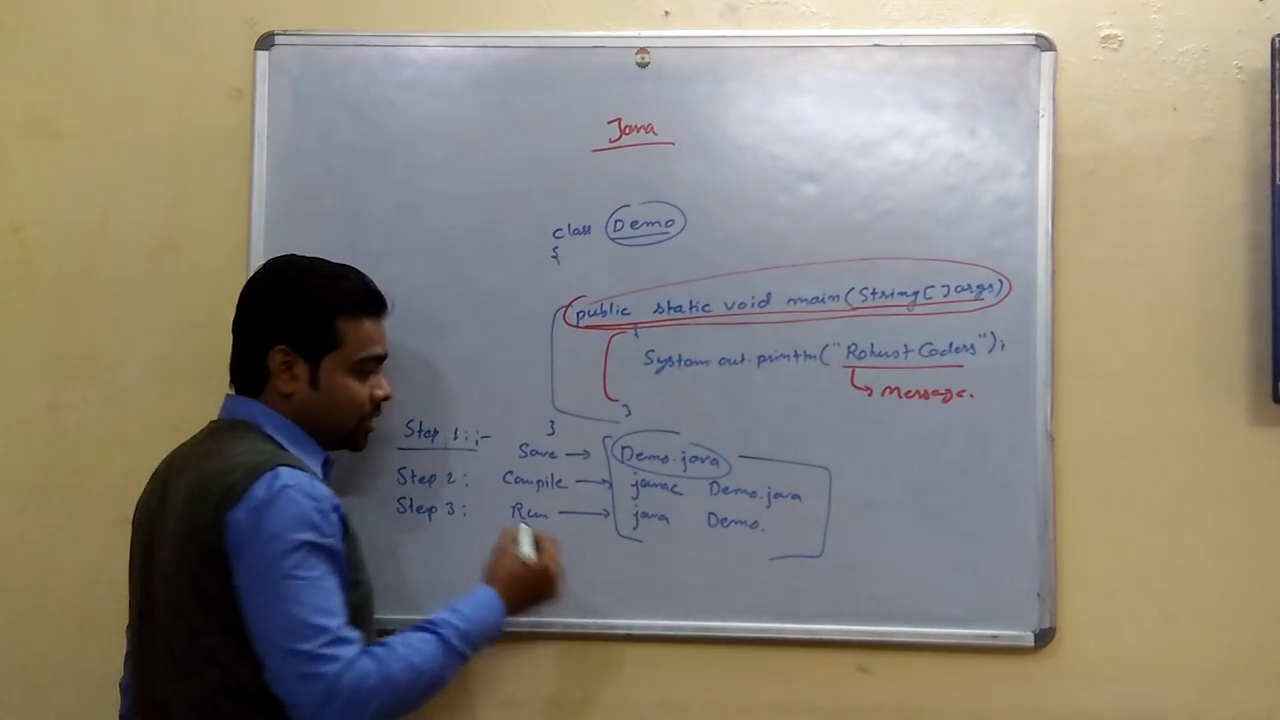 Java
class Demo
{
public static void main(String[]args)
{
System.out.println("Robust Coders");
→ Message.
}
}
Step 1:- Save → Demo.java
Step 2: Compile → javac Demo.java
Step 3: Run → java Demo.